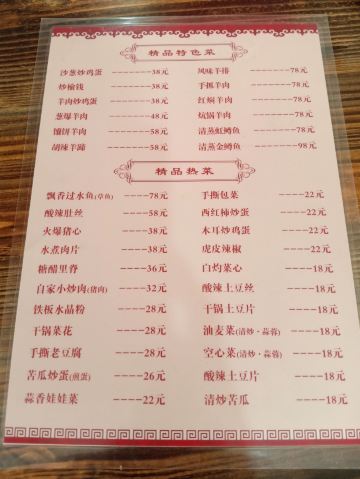 精品特色菜
沙葱炒鸡蛋------38元 风味羊排------78元
炒榆钱------38元 手抓羊肉------78元
羊肉炒鸡蛋------48元 红焖羊肉------78元
葱爆羊肉------48元 炕锅羊肉------78元
馕饼羊肉------68元 清蒸虹鳟鱼------78元
胡辣羊蹄------58元 清蒸金鳟鱼------98元
精品热菜
飘香过水鱼(草鱼)----78元 手撕包菜----22元
酸辣肚丝----58元 西红柿炒蛋----22元
火爆猪心----38元 木耳炒鸡蛋----22元
水煮肉片----38元 虎皮辣椒----22元
糖醋里脊----36元 白灼菜心----18元
自家小炒肉(猪肉)----32元 酸辣土豆丝----18元
铁板水晶粉----28元 干锅土豆片----18元
干锅菜花----28元 油麦菜(清炒·蒜蓉)----18元
手撕老豆腐----28元 空心菜(清炒·蒜蓉)----18元
苦瓜炒蛋(煎蛋)----26元 酸辣土豆片----18元
蒜香娃娃菜----22元 清炒苦瓜----18元